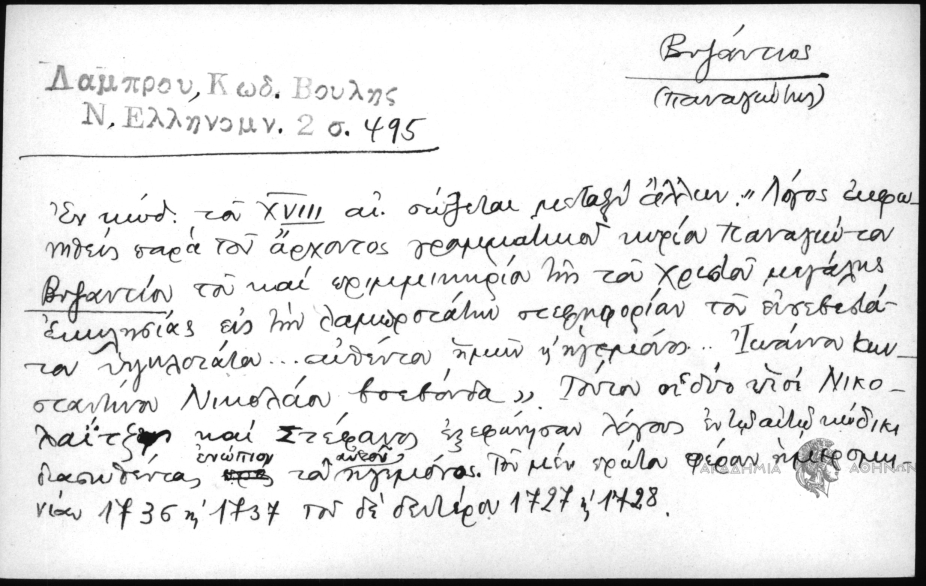 Βυζάντιος
(Παναγιώτης)
Λαμπρου, Κωδ. Βουλης
Ν. Ελληνομν. 2 σ. 495
Ἐν κώδ. τοῦ XVIII αἰ. σώζεται μεταξὺ ἄλλων "Λόγος ἐκφω-
νηθεὶς παρὰ τοῦ ἄρχοντος γραμματικοῦ κυρίου Παναγιώτου
Βυζαντίου τοῦ καὶ πριμμικηρίου τῆς τοῦ Χριστοῦ μεγάλης
ἐκκλησίας εἰς τὴν λαμπροτάτην στεφηφορίαν τοῦ εὐσεβεστά-
του ὑψηλοτάτου... αὐθέντου ἡμῶν ἡγεμόνος.. Ἰωάννου Κων-
σταντίνου Νικολάου βοεβόνδα". Τούτου οἱ δύο υἱοὶ Νικο-
λαΐτζης καὶ Στέφανος ἐξεφώνησαν λόγους ἐν τῷ αὐτῷ κώδικι
διασωθέντας ἐνώπιον τοῦ αὐτοῦ ἡγεμόνος. Τοῦ μὲν πρώτου φέρων ἡμερομη-
νίαν 1736 ἢ 1737 τοῦ δὲ δευτέρου 1727 ἢ 1728.
ΑΚΑΔΗΜΙΑ ΑΘΗΝΩΝ